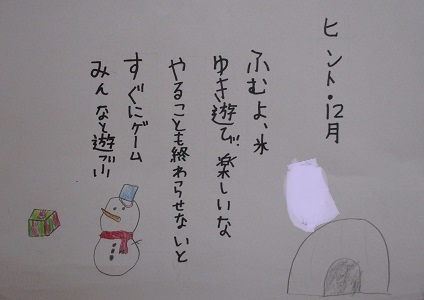 ヒント・12月
ふむよ、氷
ゆき遊び楽しいな
やることも終わらせないと
すぐにゲーム
みんなと遊ぶ